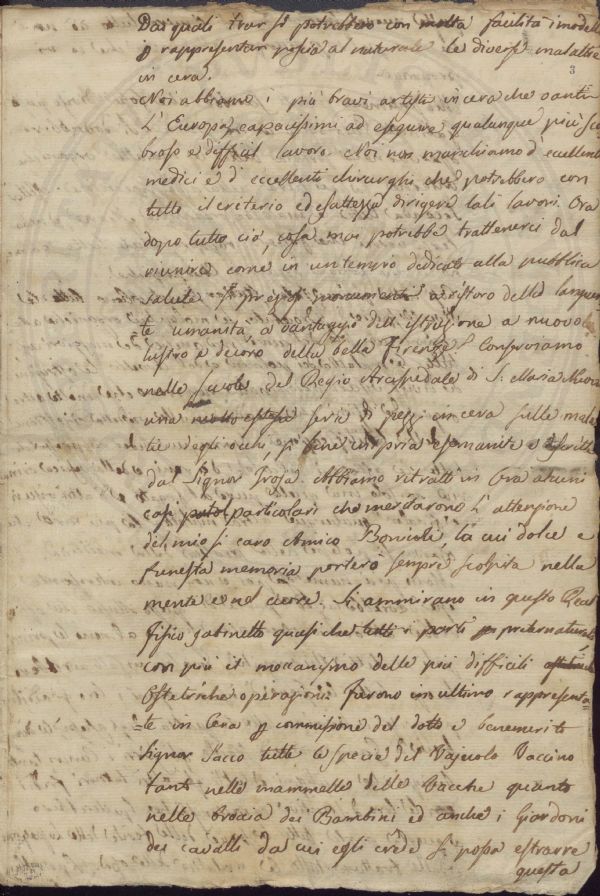 Dai quali trar si potrebbero con molta facilità i modelli
p rappresentar possia al naturale le diverse malattie
3
in cera.
Noi abbiamo i più bravi artisti in cera che vanti
L'Europa, capacissimi ad eseguire qualunque più sca
broso e difficil lavoro. Noi non manchiamo d'eccellenti
medici e d'eccellenti chirurghi che potrebbero con
tutto il criterio ed esattezza dirigere tali lavori. Ora
dopo tutto ciò, cosa mai potrebbe trattenerci dal
riunire come in un tempio dedicato alla pubblica
salute sì preziosi monumenti a ristoro della languen
te umanità, a vantaggio dell'istruzione a nuovo
lustro e decoro della bella Firenze? Conserviamo
nelle scuole del Regio Arcispedale di S. Maria Nuova
una molto estesa serie di pezzi in cera sulle malat
tie degli occhi, sì bene in pria esaminate e descritte
dal Signor Troja. Abbiamo ritratti in Cera alcuni
casi particolari che meritarono L'attenzione
del mio sì caro Amico Bonicoli, la cui dolce e
funesta memoria porterò sempre scolpita nella
mente e nel cuore. Si ammirano in questo Real
Fisico gabinetto quasi che tutti i parti preternaturali
con più il meccanismo delle più difficili
Ostetriche operazioni. Furono in ultimo rappresenta=
=te in Cera p commissione del dotto e benemerito
Signor Sacco tutte le specie del Vajuolo Vaccino
tanto nelle mammelle delle Vacche quanto
nelle braccia dei Bambini ed anche i Giardoni
dei cavalli da cui egli crede si possa estrarre
questa